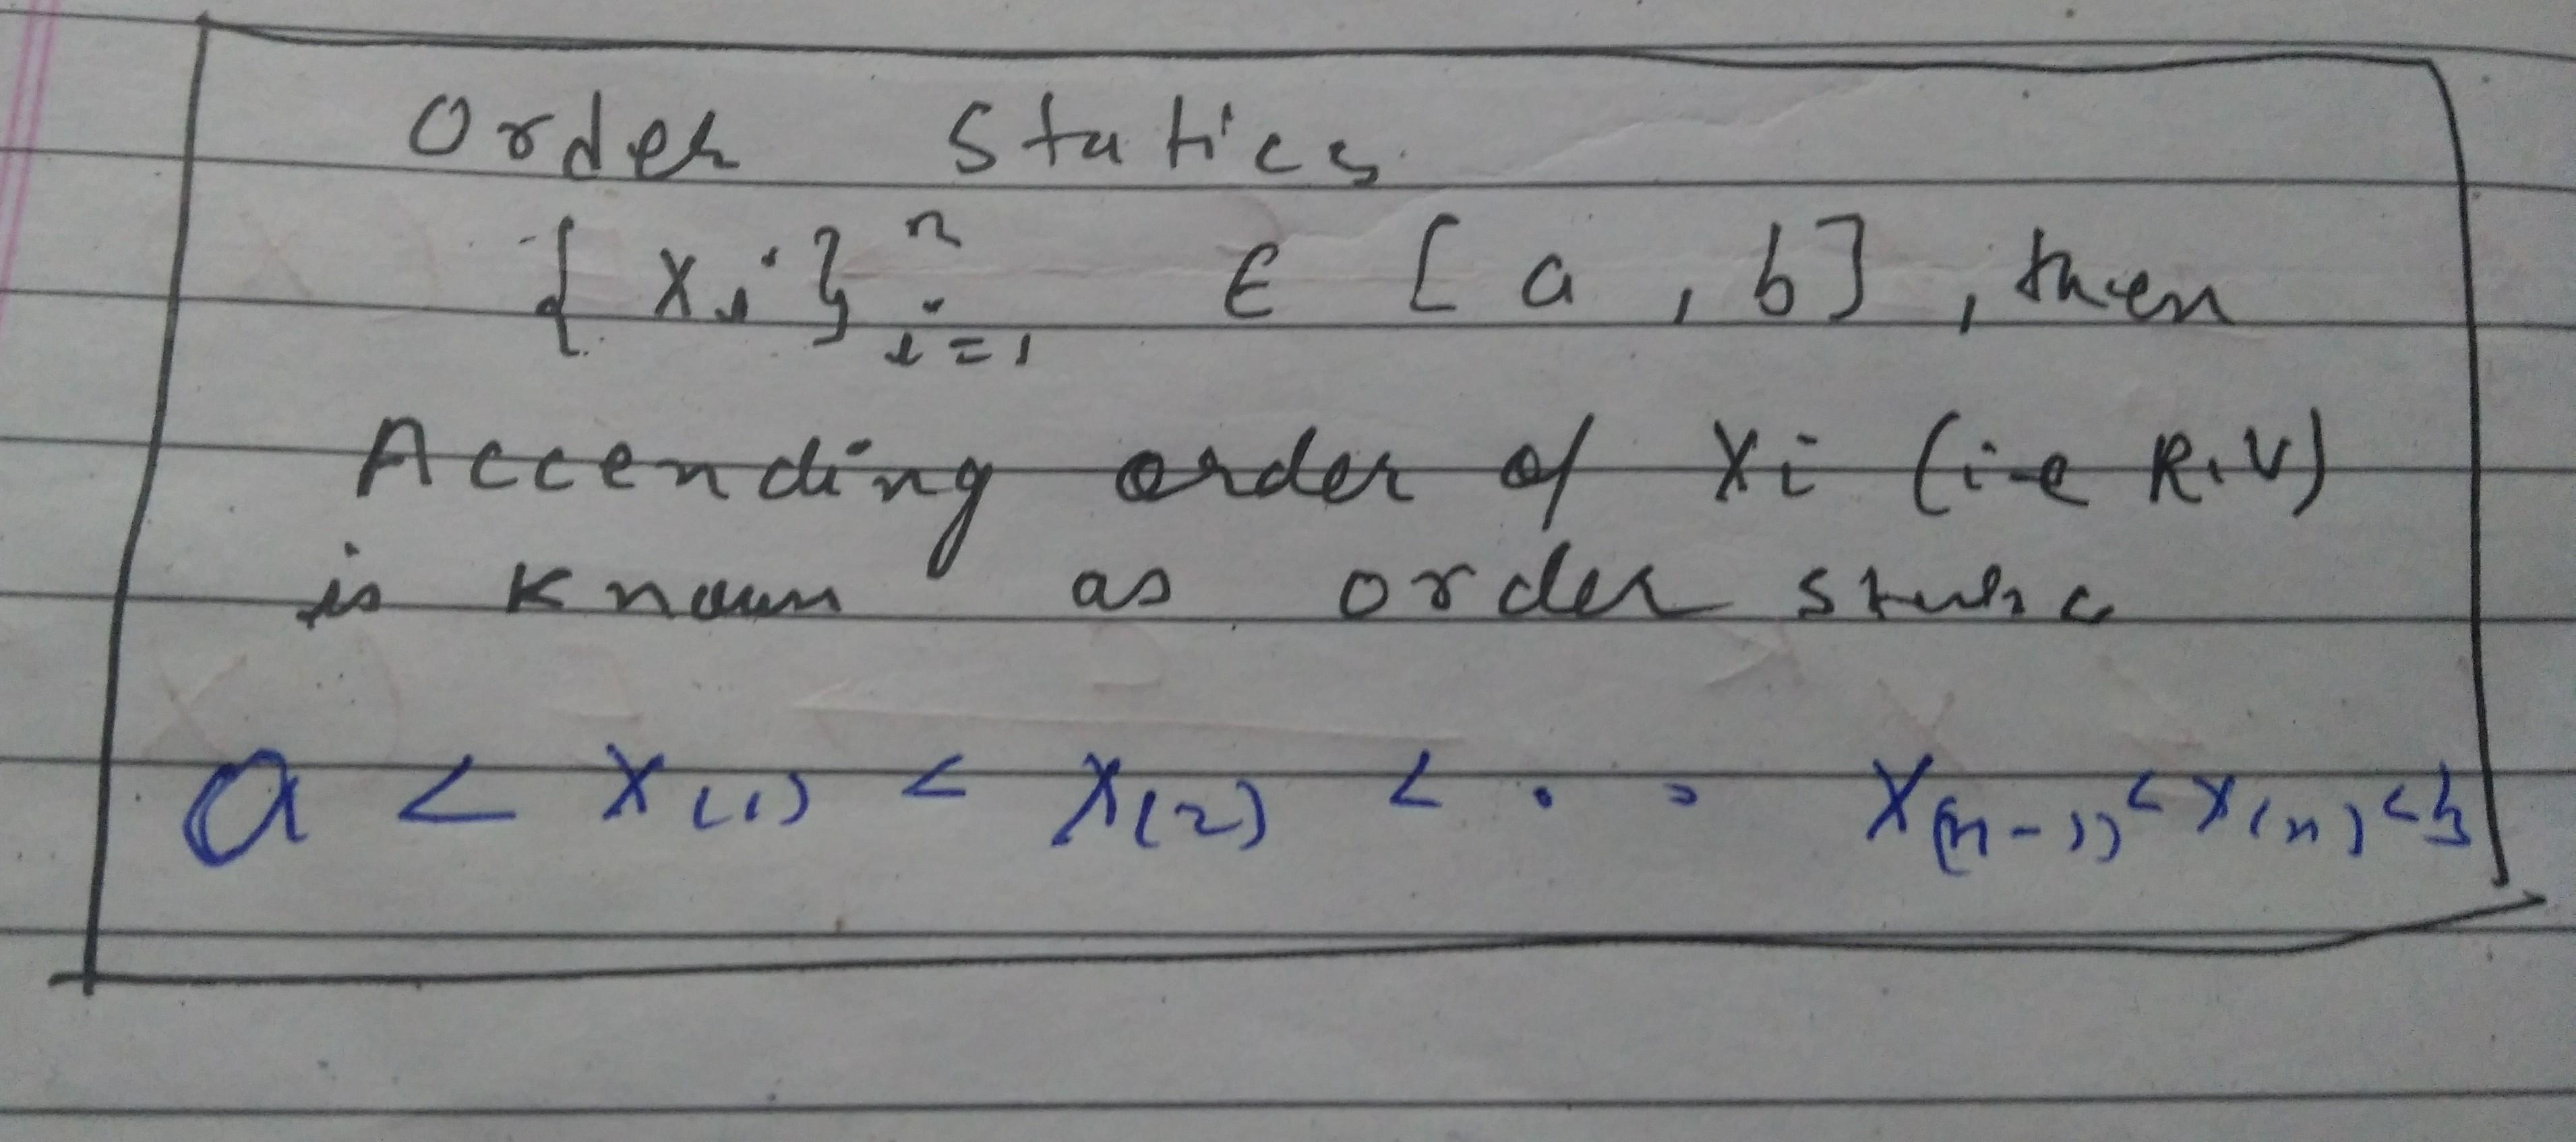 Order Statics
{Xi}ⁿᵢ₌₁ ∈ [a, b], then
Accending order of Xi (i-e R.V)
is known as order static
a < X(1) < X(2) < . . X(n-1) < X(n) < b